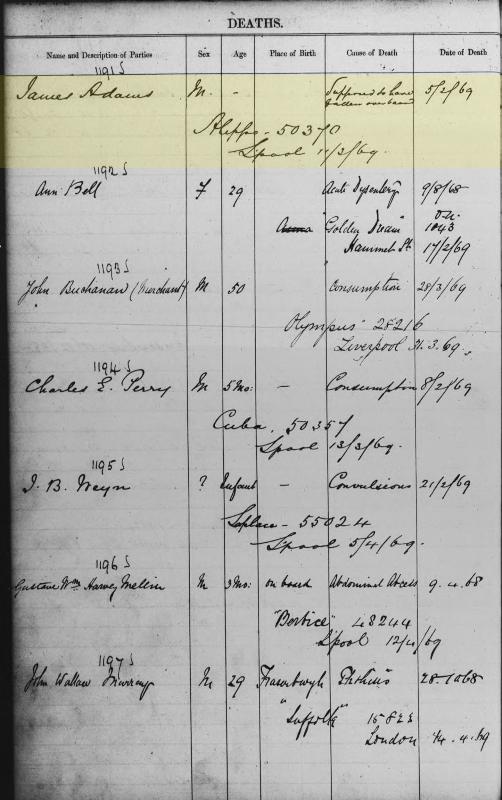 DEATHS.
Name and Description of Parties Sex Age Place of Birth Cause of Death Date of Death
1191 S
James Adams M. - Supposed to have 5/2/69
fallen overboard
Aleppo - 50370
L'pool 11/3/69.
1192 S
Ann Bell F 29 Acute Dysentery 9/8/68
"Golden Dream" O.N. 1043
Hammet St. 17/2/69
1193 S
John Buchanan (Merchant) M 50 Consumption 28/3/69
Olympus 28216
Liverpool 31.3.69.
1194 S
Charles E. Perry M 5 Mo: - Consumption 8/2/69
Cuba. 50357
L'pool 13/3/69.
1195 S
J. B. Weyn ? Infant - Convulsions 21/2/69
Laplace - 55024
L'pool 5/4/69.
1196 S
Gustave Wm Harvey Mellin M 3 Mo: on board Abdominal Abcess 9.4.68
"Berbice" 48244
L'pool 12/4/69
1197 S
John Wallace M 29 Phthisis 28.10.68
"Suffolk" 15823
London 14.4.69